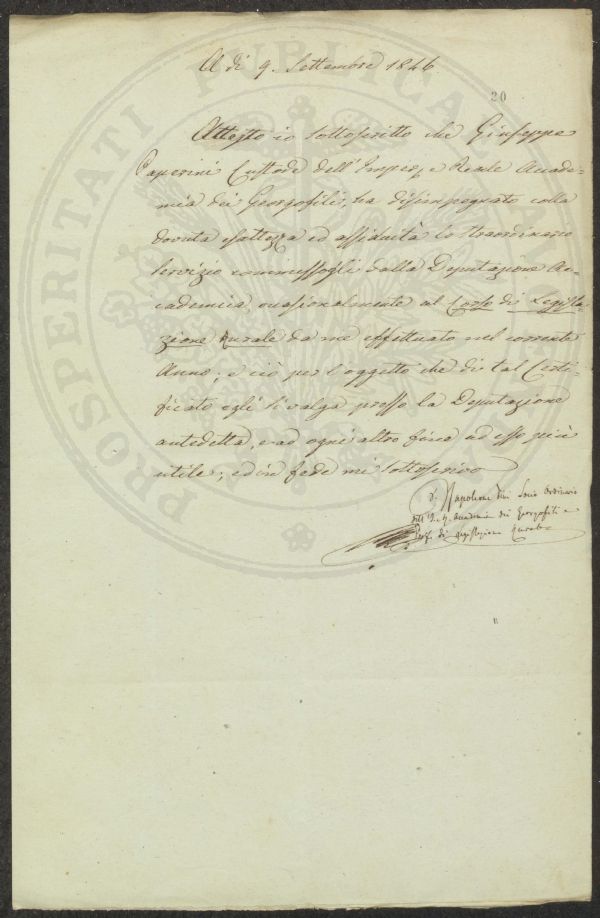 A dì 9. Settembre 1846.
20
Attesto io sottoscritto che Giuseppe
Paperini Custode dell'Imper. e Reale Accade-
mia dei Georgofili, ha disimpegnato colla
dovuta esattezza ed assiduità lo straordinario
servizio commessogli dalla Deputazione Ac-
cademica, occasionalmente al Corso di Legisla-
zione Rurale da me effettuato nel corrente
Anno; e ciò per l'oggetto che di tal Certi-
ficato egli si valga presso la Deputazione
antedetta, e ad ogni altro fine ad esso più
utile; ed in fede mi sottoscrivo
Napoleone Pini Socio Ordinario
dell'I. e R. Accademia dei Georgofili e
Prof. di Legislazione Rurale
PROSPERITATI PUBLICAE AUGENDAE